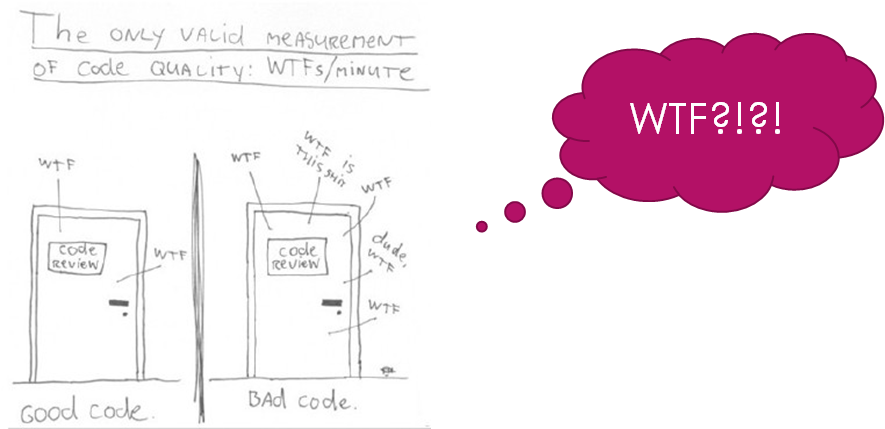 The ONLY VALID MEASUREMENT
OF Code QUALITY: WTFs/MINUTE
WTF
Code
REVIEW
WTF
GOOD CODE.
WTF
WTF IS
THIS SHIT
WTF
Code
REVIEW
dude,
WTF
WTF
BAD code.
WTF?!?!